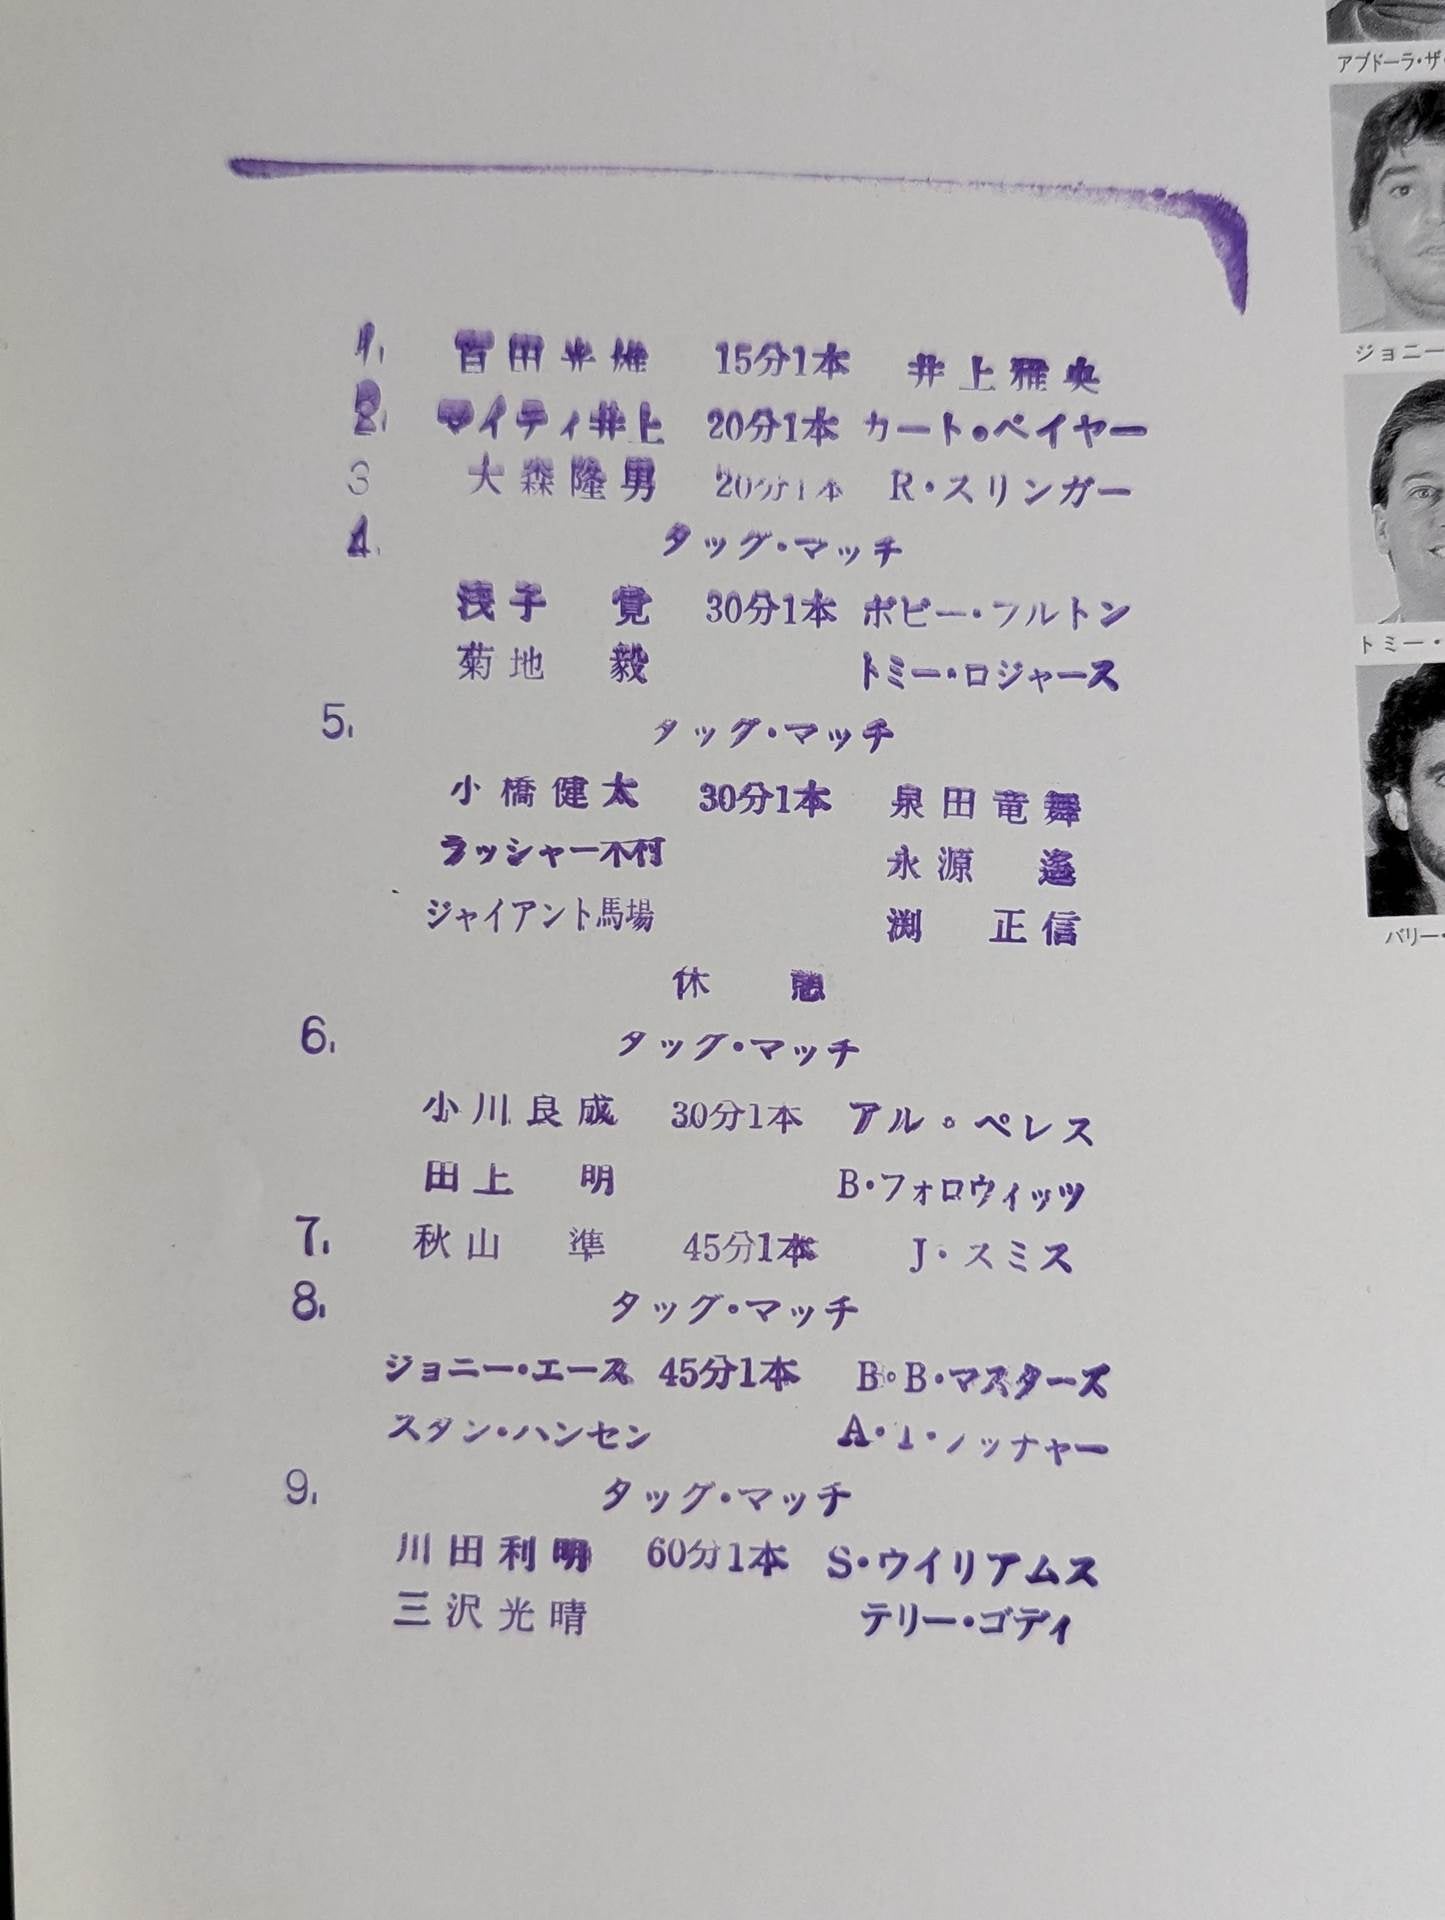 1. 百田光雄 15分1本 井上雅央
2. マイティ井上 20分1本 カート・ベイヤー
3 大森隆男 20分1本 R・スリンガー
4. タッグ・マッチ
浅子 覚 30分1本 ボビー・フルトン
菊地 毅 トミー・ロジャース
5. タッグ・マッチ
小橋健太 30分1本 泉田竜舞
ラッシャー木村 永源 遙
ジャイアント馬場 渕 正信
休 憩
6. タッグ・マッチ
小川良成 30分1本 アル・ペレス
田上 明 B・フォロウィッツ
7. 秋山 準 45分1本 J・スミス
8. タッグ・マッチ
ジョニー・エース 45分1本 B・B・マスターズ
スタン・ハンセン A・T・ブッチャー
9. タッグ・マッチ
川田利明 60分1本 S・ウイリアムス
三沢光晴 テリー・ゴディ
アブドーラ・ザ・
ジョニー
トミー・
バリー・